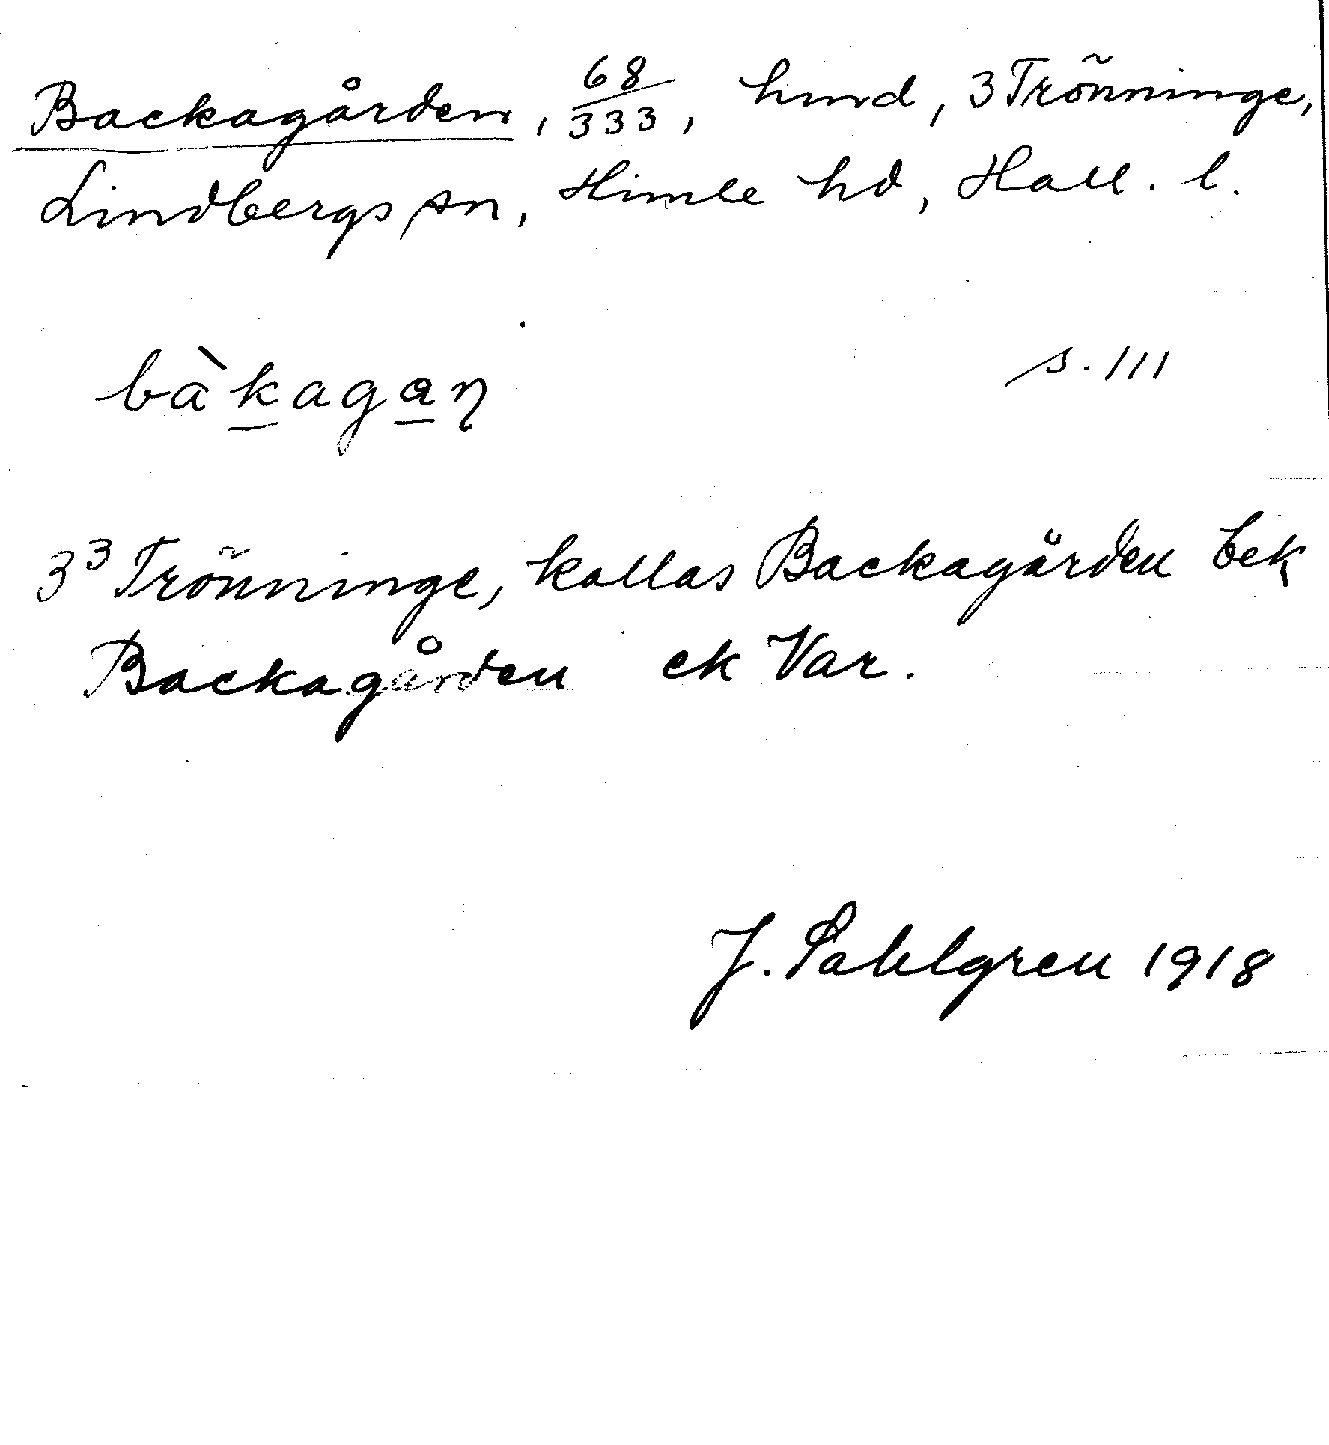 Backagården, 68/333, hmd, 3 Trönninge,
Lindbergs sn, Himle hd, Hall. l.
bàkagaŋ s. 111
3³ Trönninge, kallas Backagården bek
Backagården ek Var.
J. Sahlgren 1918